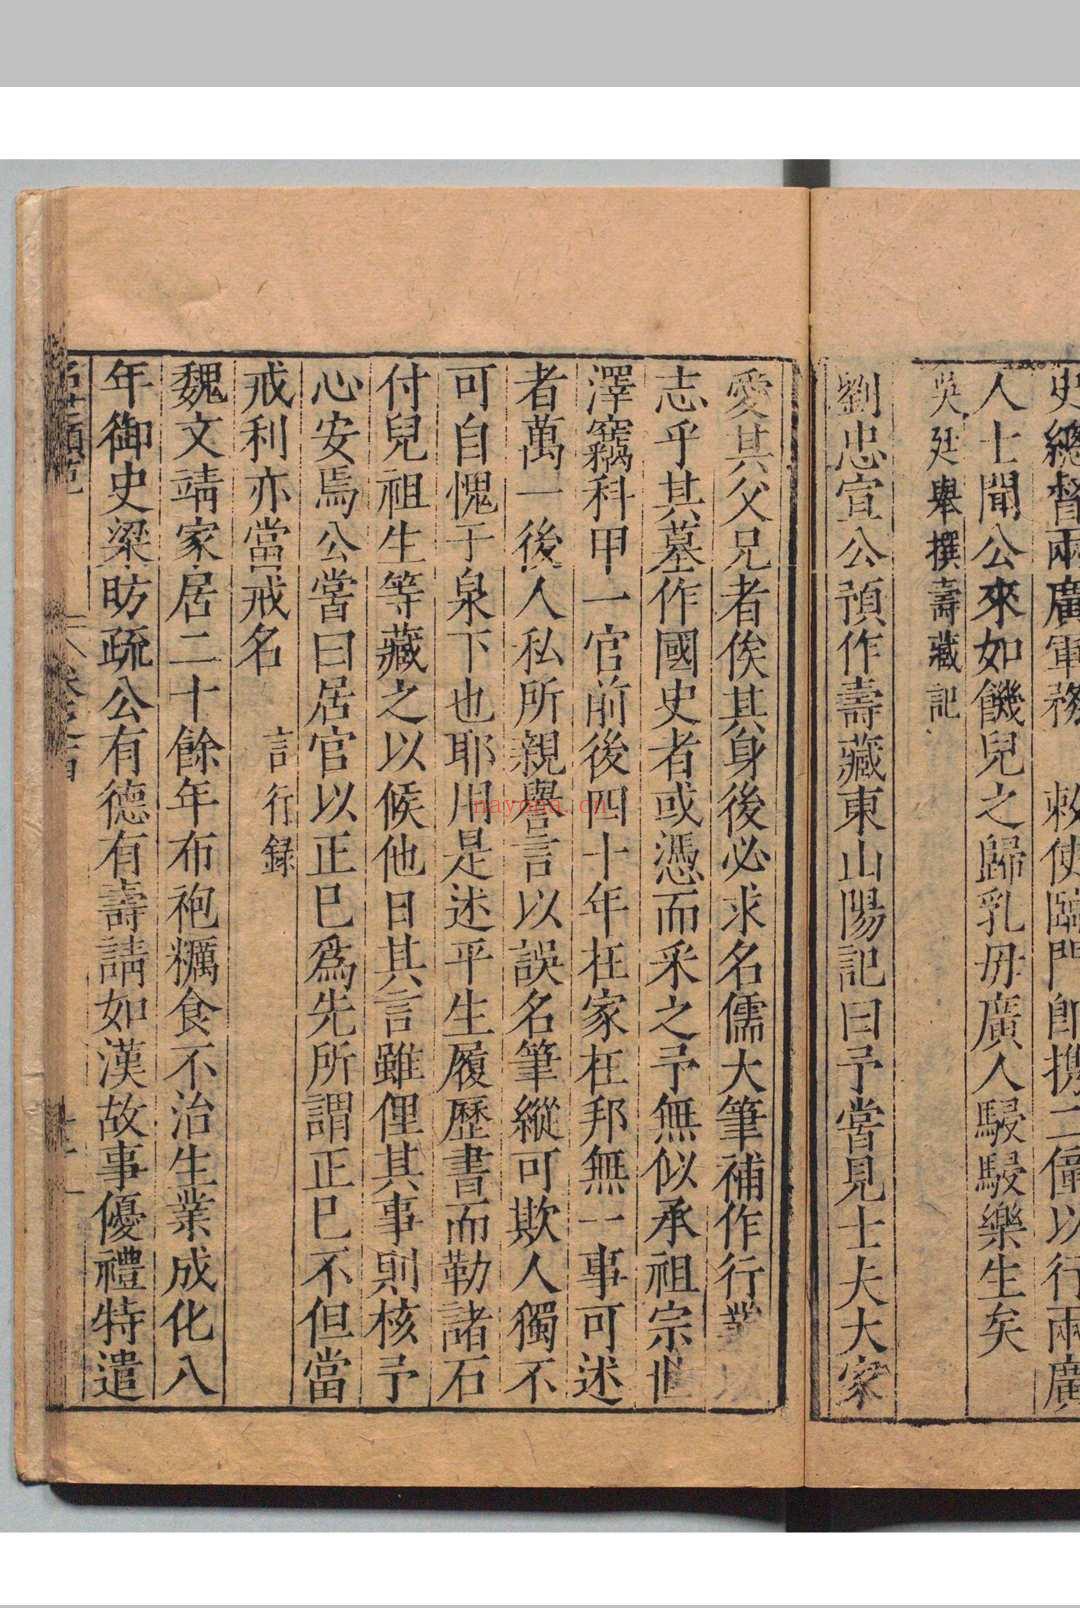 史總督兩廣軍務 敕使臨門即携二僮以行兩廣
人士聞公來如饑兒之歸乳毋廣人駸駸樂生矣
吳廷舉撰壽藏記
劉忠宣公預作壽藏東山陽記曰予嘗見士夫大家
愛其父兄者俟其身後必求名儒大筆補作行業以
志乎其墓作國史者或憑而采之予無似承祖宗世
澤竊科甲一官前後四十年在家在邦無一事可述
者萬一後人私所親譽言以誤名筆縱可欺人獨不
可自愧于泉下也耶用是述平生履歷書而勒諸石
付兒祖生等藏之以候他日其言雖俚其事則核予
心安焉公嘗曰居官以正巳爲先所謂正巳不但當
戒利亦當戒名 言行錄
魏文靖家居二十餘年布袍糲食不治生業成化八
年御史梁昉疏公有德有壽請如漢故事優禮特遣
nayona.cn